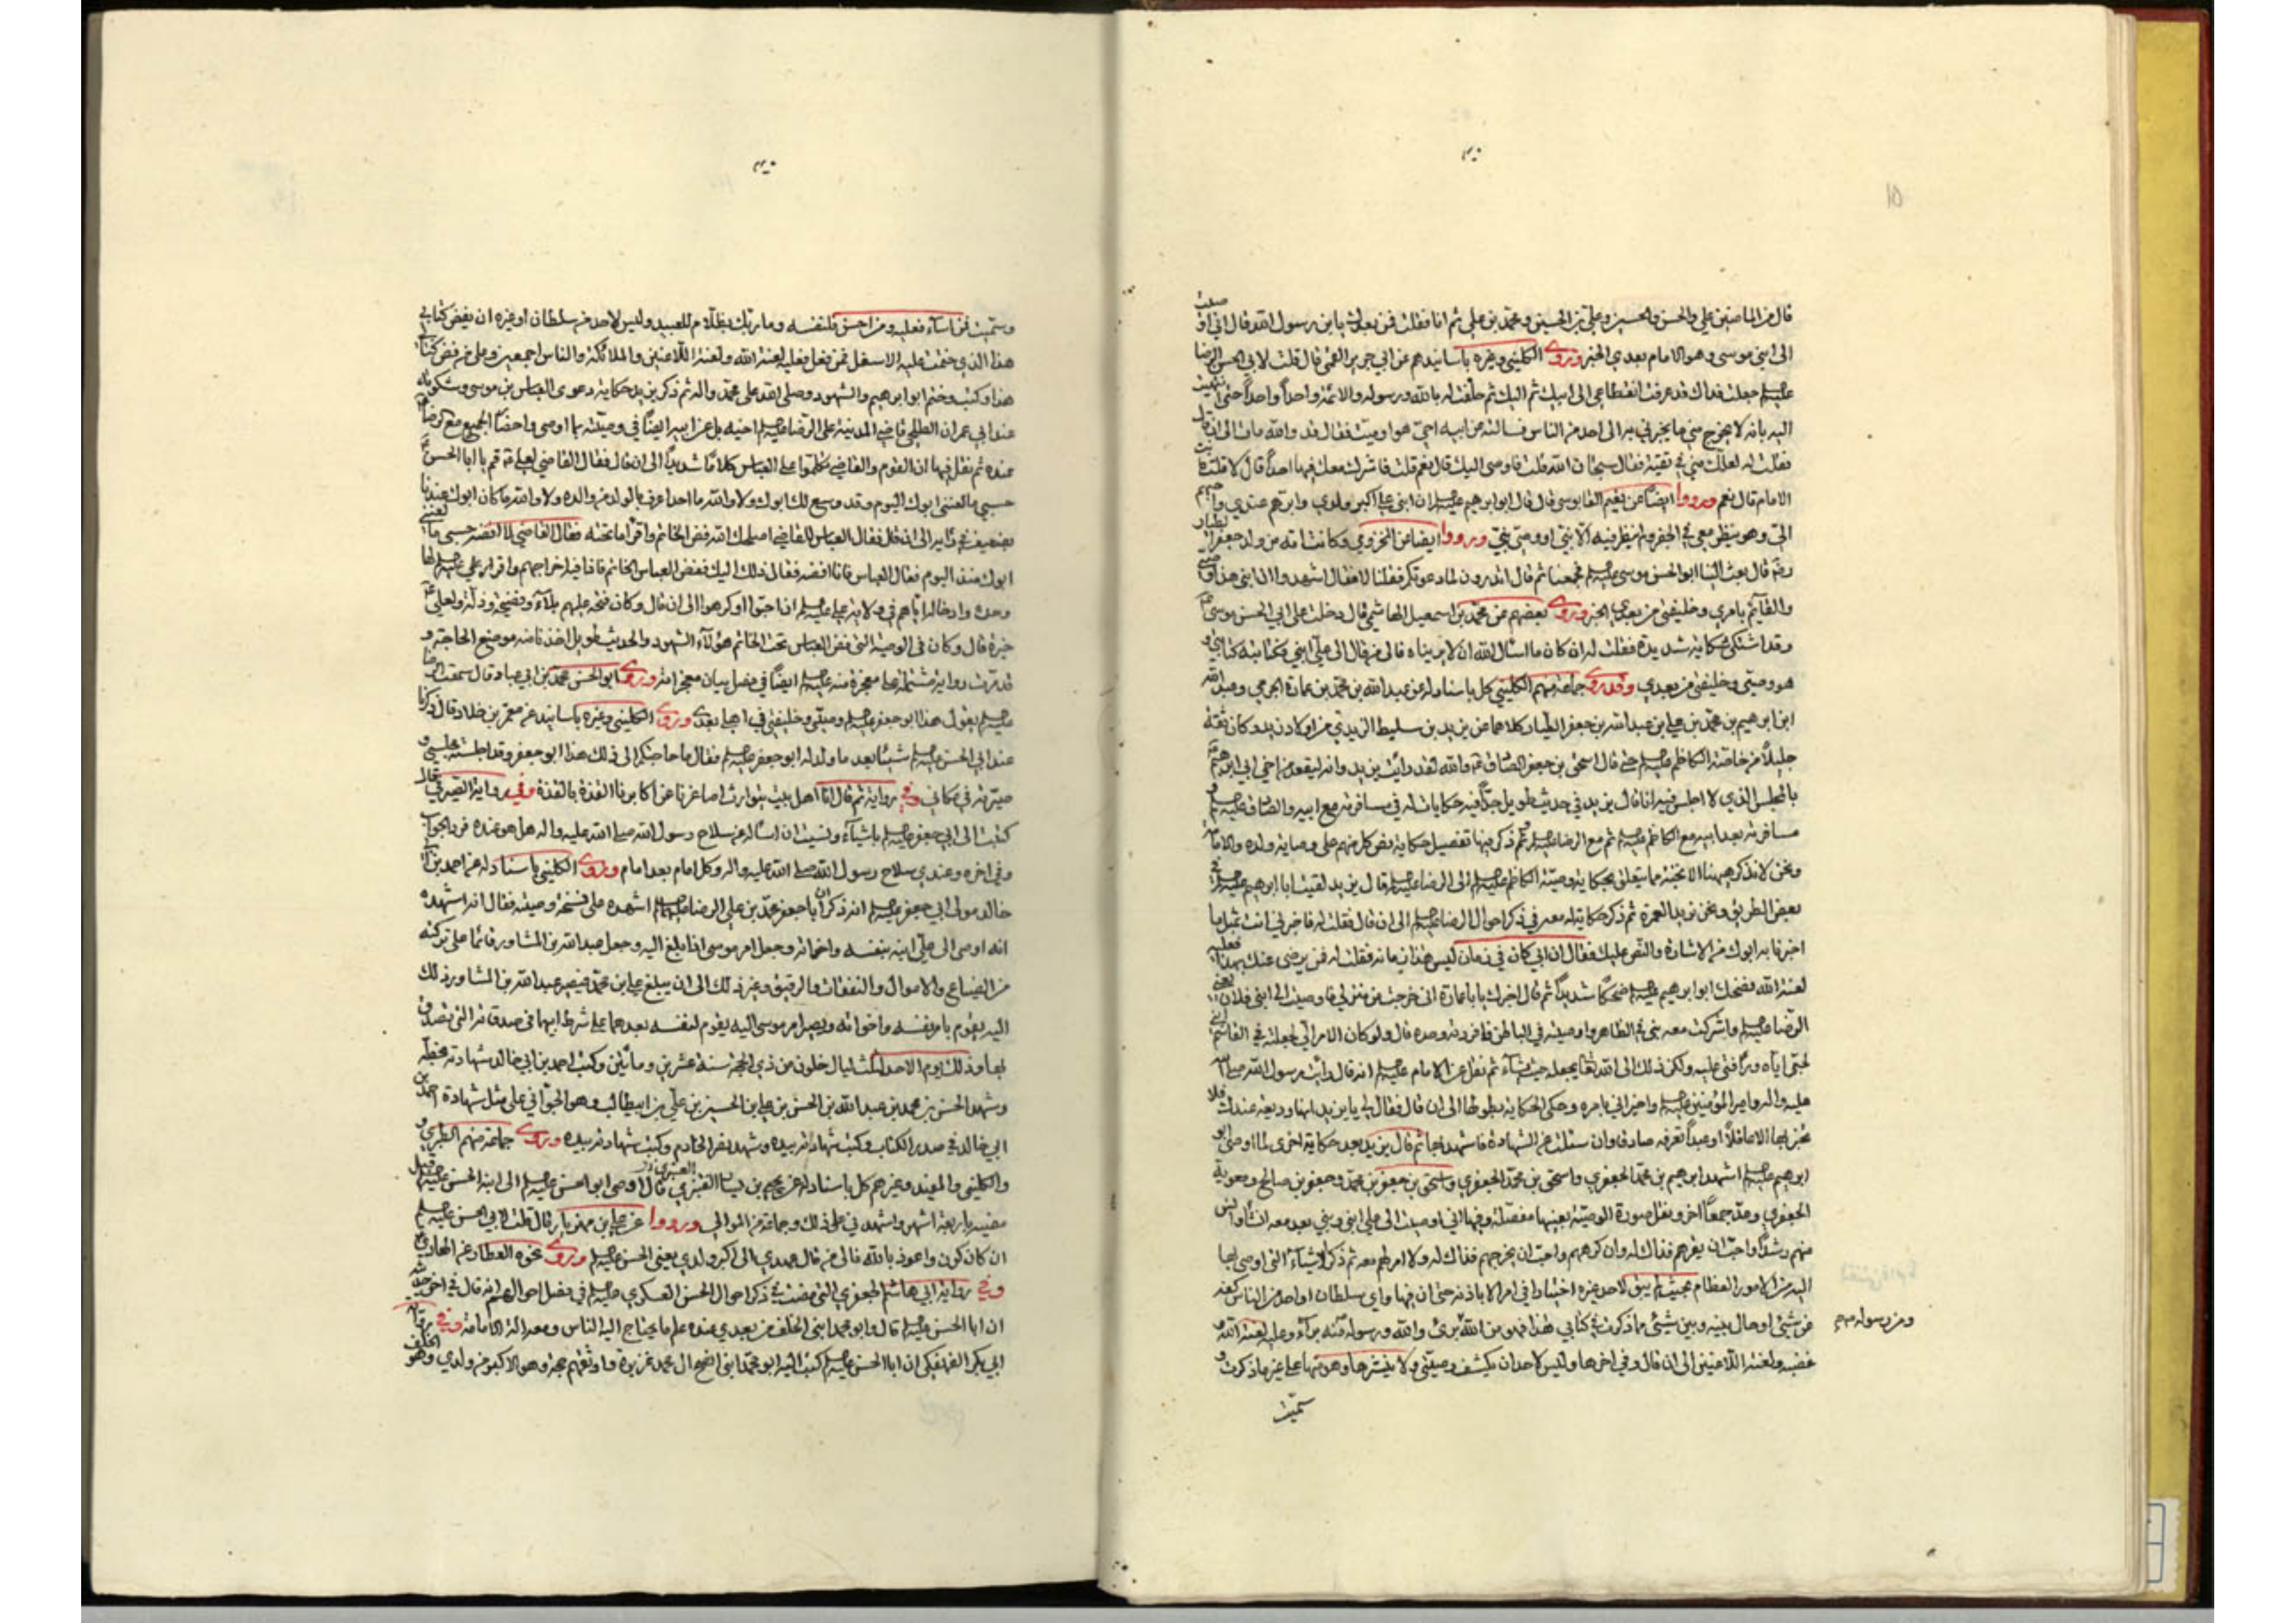 قال من الماضين علي والحسن والحسين وعلي بن الحسين ومحمد بن علي ثم انا فقلت فمن بعدك يابن رسول الله قال اني اوصيت
الى ابني موسى وهو الامام بعدي الخبر وروى الكليني وغيره باسانيدهم عن ابي جرير القمي قال قلت لابي الحسن الرضا
جعلت فداك قد عرفت انقطاعي الى ابيك ثم اليك ثم حلفت له بالله ورسوله والائمة واحداً واحداً حتى انتهيت
اليه بانه لا يخرج مني ما يخبرني به الى احد من الناس فسالته عن ابيه احي هو او ميت فقال قد والله مات الى ان قال
فقلت له لعلك مني في تقية فقال سبحان الله قلت فاوصى اليك قال نعم قلت فاشرك معك فيها احداً قال لا قلت
الامام قال نعم ورووا ايضاً عن نعيم القابوسي قال قال ابو ابراهيم ان ابني علي اكبر ولدي وابرهم عندي واحبهم
الي وهو ينظر معي في الجفر ولم ينظر فيه الا نبي او وصي نبي ورووا ايضا عن المخزومي وكانت امه من ولد جعفر الطيار
قال بعث الينا ابو الحسن موسى فجمعنا ثم قال اتدرون لما دعوتكم فقلنا لا فقال اشهدوا ان ابني هذا وصيي
والقايم بامري وخليفتي من بعدي الخبر وروى بعضهم عن محمد بن اسمعيل الهاشمي قال دخلت على ابي الحسن موسى
وقد اشتكى شكاية شديدة فقلت له ان كان ما اسئل الله ان لا يريناه فالى من قال الى علي ابني وكتابته كتابي و
هو وصيي وخليفتي من بعدي وقد روى جماعة منهم الكليني كل باسناد له عن عبد الله بن محمد بن عمارة الجرمي وعبد الله
ابن ابرهيم بن محمد بن علي بن عبد الله بن جعفر الطيار كلاهما عن يزيد بن سليط الزيدي من اولاد زيد وكان ثقة
جليلاً من خاصة الكاظم حتى قال اسحق بن جعفر الصادق والله لقد رايت يزيد وانه ليقعد من اخي ابي ابرهيم
بالمجلس الذي لا اجلس فيه انا قال يزيد في حديث طويل جداً فيه حكايات له في مسافرته مع ابيه والصادق
مسافرته بعد ابيه مع الكاظم ثم مع الرضا ثم ذكر فيها تفصيل حكاية نص كل منهم على وصاية ولده والامامة
ونحن لا نذكر ههنا الا نخبة مما يتعلق بحكاية وصية الكاظم الى الرضا قال يزيد لقيت ابا ابرهيم
بعض الطريق ونحن نريد العمرة ثم ذكر حكاية له معه في ذكر احوال الرضا الى ان قال فقلت له فاخبرني انت بمثل ما
اخبرنا به ابوك من الاشارة والنص عليك فقال ان ابي كان في زمان ليس هذا زمانه فقلت له فمن يرضى عنك بهذا فعليه
لعنة الله فضحك ابو ابرهيم ضحكاً شديداً ثم قال اخبرك يا با عمارة اني خرجت من منزلي فاوصيت الى ابني فلان يعني
الرضا واشركت معه بني في الظاهر واوصيته في الباطن فافردته وحده قال ولو كان الامر الي لجعلته في القاسم ابني
لحبي اياه ورافتي عليه ولكن ذلك الى الله تعالى يجعله حيث يشاء ثم نقل عن الامام انه قال رايت رسول الله
عليه واله وامير المؤمنين واخبراني بامره وحكى الحكاية بطولها الى ان قال فقال لي يا يزيد انها وديعة عندك فلا
تخبر بها الا عاقلاً او عبداً تعرفه صادقا وان سئلت عن الشهادة فاشهد بها ثم قال يزيد بعد حكاية اخرى لما اوصى ابو
ابرهيم اشهد ابرهيم بن محمد الجعفري واسحق بن محمد الجعفري واسحق بن جعفر بن محمد وجعفر بن صالح ومعوية
الجعفري وعد جمعاً اخر ونقل صورة الوصية بعينها مفصلة وفيها اني اوصيت الى علي ابني وبني بعد معه ان شاء وانس
منهم رشداً واحب ان يقرهم فذاك له وان كرههم واحب ان يخرجهم فذاك له ولا امر لهم معه ثم ذكر الاشياء التي اوصى بها
اليه من الامور العظام بحيث لم يبق لاحد غيره اختيارا في امر الا باذنه حتى ان فيها واي سلطان او احد من الناس كفه
عن شئ او حال بينه وبين شئ مما ذكرت في كتابي هذا فهو من الله برئ والله ورسوله منه براء وعليه لعنة الله و
ومن رسوله
غضبه ولعنة اللاعنين الى ان قال وفي اخرها وليس لاحد ان يكشف وصيتي ولا ينشرها وهو منها على غير ما ذكرت و
سميت
وسميت فمن اساء فعليه ومن احسن فلنفسه وما ربك بظلام للعبيد وليس لاحد من سلطان او غيره ان يفض كتابي
هذا الذي ختمت عليه الاسفل فمن فعل فعليه لعنة الله ولعنة اللاعنين والملائكة والناس اجمعين وعلى من فض كتابي
هذا وكتب وختم ابو ابرهيم والشهود وصلى الله على محمد واله ثم ذكر يزيد حكاية دعوى العباس بن موسى وشكوته
عند ابي عمران الطلحي قاضي المدينة على الرضا اخيه بل عن ابيه ايضاً في وصيته بما اوصى واحضار الجميع مع الرضا
عنده ثم نقل فيها ان القوم والقاضي تكلموا على العباس كلاماً شديداً الى ان قال فقال القاضي لعلي قم يا ابا الحسن
حسبي ما لعنني ابوك اليوم وقد وسع لك ابوك ولا والله ما احد اعرف بالولد من والده ولا والله ما كان ابوك عندنا
بضعيف في رايه الى ان قال فقال العباس للقاضي اصلحك الله فض الخاتم واقرا ما تحته فقال القاضي لا افضه حسبي ما لعنني
ابوك منذ اليوم فقال العباس فانا افضه فقال ذلك اليك ففض العباس الخاتم فاذا فيه اخراجهم واقرار علي لها
وحده وادخاله اياهم في ولاية علي ان احبوا او كرهوا الى ان قال وكان فتحه عليهم بلاء وفضيحة وذلة ولعلي
خيرة قال وكان في الوصية التي فض العباس تحت الخاتم هؤلاء الشهود والحديث طويل اخذنا منه موضع الحاجة و
قد مرت رواية مشتملة على معجزة منه ايضاً في فصل بيان معجزاته وروى ابو الحسن محمد بن ابي عباد قال سمعت الرضا
يقول هذا ابو جعفر وصيي وخليفتي في اهلي بعدي وروى الكليني وغيره باسانيد عن معمر بن خلاد قال ذكرنا
عند ابي الحسن شيئا بعد ما ولد له ابو جعفر فقال ما حاجتكم الى ذلك هذا ابو جعفر وقد اجلسته مجلسي و
صيرته في مكاني وفي رواية ثم قال انا اهل بيت يتوارث اصاغرنا عن اكابرنا القذة بالقذة وفي رواية الصيرفي قال
كتبت الى ابي جعفر باشياء ونسيت ان اساله عن سلاح رسول الله صلى الله عليه واله هل هو عنده فورد الجواب
وفي اخره وعندي سلاح رسول الله صلى الله عليه واله وكل امام بعد امام وروى الكليني باسناد له عن احمد بن ابي
خالد مولى ابي جعفر انه ذكر ان ابا جعفر محمد بن علي الرضا اشهده على نسخة وصيته فقال انه اشهده
انه اوصى الى علي ابنه بنفسه واخواته وجعل امر موسى اذا بلغ اليه وجعل عبد الله بن المشاور قائما على تركته
من الضياع والاموال والنفقات والرقيق وغير ذلك الى ان يبلغ علي ابن محمد فيصير عبد الله بن المشاور ذلك
اليه يقوم بامر نفسه واخواته ويصير امر موسى اليه يقوم لنفسه بعدهما على شرط ابيها في صدقاته التي تصدق
بها وذلك يوم الاحد لثلث ليال خلون من ذي الحجة سنة عشرين ومأتين وكتب احمد بن ابي خالد شهادته بخطه
وشهد الحسن بن محمد بن عبد الله بن الحسن بن علي بن الحسين بن علي بن ابيطالب وهو الجواني على مثل شهادة احمد بن
ابي خالد في صدر الكتاب وكتب شهادته بيده وشهد نصر الخادم وكتب شهادته بيده وروى جماعة منهم الطبرسي و
والكليني والمفيد وغيرهم كل باسناد له عن يحيى بن يسار القنبري قال اوصى ابو الحسن الى ابنه الحسن قبل
مضيه باربعة اشهر واشهدني على ذلك وجماعة من الموالي ورووا عن علي بن مهزيار قال قلت لابي الحسن
ان كان كون واعوذ بالله فالى من قال عهدي الى اكبر ولدي يعني الحسن وروى نحوه العطار عن
وفي رواية ابي هاشم الجعفري التي مضت في ذكر احوال الحسن العسكري في فصل احوالهم انه قال في اخر حديثه
ان ابا الحسن قال وابو محمد ابني الخلف من بعدي عنده علم ما يحتاج اليه الناس ومعه الة الامامة وفي رواية
ابي بكر الفهفكي ان ابا الحسن كتب اليه ابو محمد ابني انصح ال محمد غريزة واوثقهم حجة وهو الاكبر من ولدي وهو الخلف